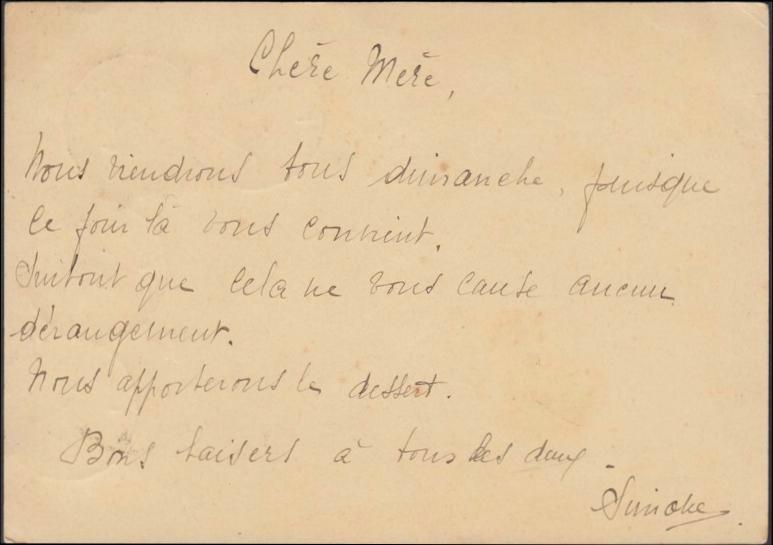 Chère Mère,
Nous viendrons tous dimanche, puisque
ce jour là vous convient.
Surtout que cela ne vous cause aucun
dérangement.
Nous apporterons le dessert.
Bons baisers à tous les deux.